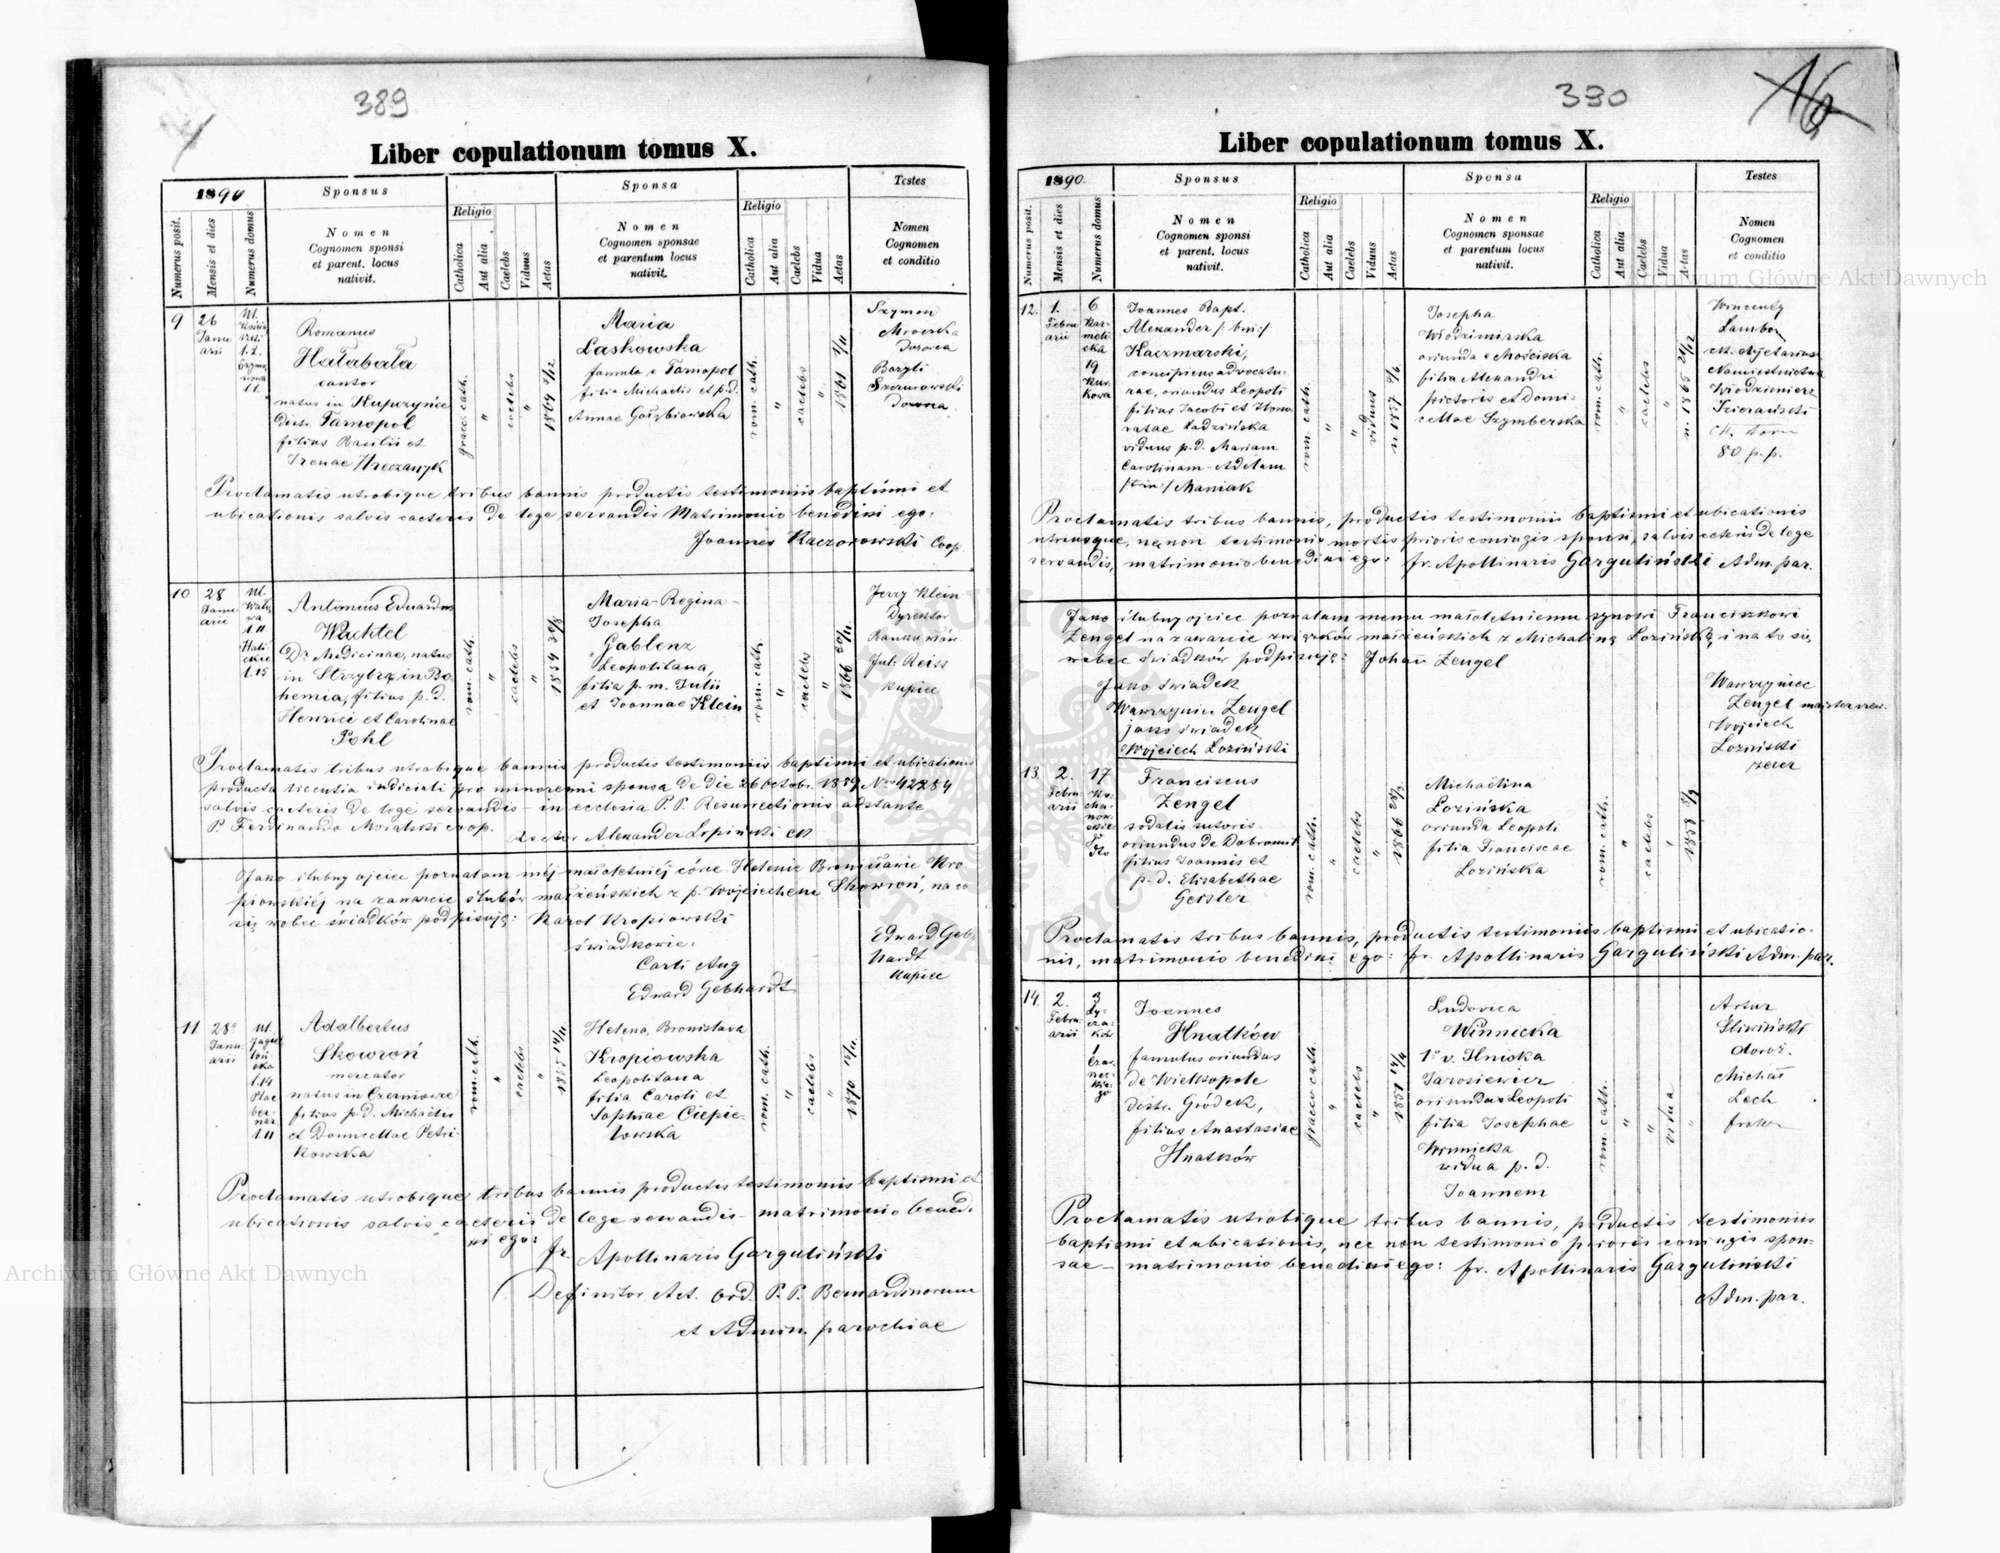 389
Liber copulationum tomus X.
1890
Sponsus
Sponsa
Testes
Numerus posit.
Mensis et dies
Numerus domus
Nomen
Cognomen sponsi
et parent. locus
nativit.
Religio
Catholica
Aut alia
Caelebs
Viduus
Aetas
Nomen
Cognomen sponsae
et parentum locus
nativit.
Religio
Catholica
Aut alia
Caelebs
Vidua
Aetas
Nomen
Cognomen
et conditio
9
26
Janu
arii
Romanus
Hałabała
cantor
natus in Kupczyńce
distr. Tarnopol
filius Basilii et
Irenae Hreczanyk
graec. cath.
"
caelebs
"
Maria
Laskowska
famula e Tarnopol
filia Michaelis et p.d.
Annae Gołębiowska
rom. cath.
"
caelebs
"
Szymon
Mroczka
Dozorca
Bazyli
Szczurowski
Dozorca
Proclamatis utrobique tribus bannis productis testimoniis baptismi et
ubicationis salvis caeteris de lege servandis Matrimonio benedixi ego:
Joannes Kaczorowski Coop.
10
28
Janu
arii
Antonius Eduardus
Wachtel
Dr Medicinae, natus
in Strzybrz in Bo-
hemia, filius p.d.
Henrici et Carolinae
Pohl
rom. cath.
"
caelebs
"
Maria-Regina-
Josepha
Gablenz
Leopolitana,
filia p. m. Julii
et Joannae Klein
rom. cath.
"
caelebs
"
Jerzy Klein
Dyrektor
Banku
Jul. Reiss
kupiec
Proclamatis tribus utrobique bannis productis testimoniis baptismi et ubicationis
producta licentia iudiciali pro minorenni sponsa de die 26 Octobr. 1889 Nro 42284
salvis caeteris de lege servandis - in ecclesia P.P. Resurrectionis adstante
P. Ferdinando Moralski coop.
Rector Alexander Lipiński
Jako ślubny ojciec pozwalam mej małoletniéj córce Helenie Bronisławie Kro-
piowskiéj na zawarcie ślubów małżeńskich z p. Wojciechem Skowroń, na co
się wobec świadków podpisuję: Karol Kropiowski
świadkowie:
Carli Aug
Edward Gebhardt
Edward Geb-
hardt
kupiec
11
28
Janu
arii
Adalbertus
Skowroń
mercator
natus in Czerniowce
filius p.d. Michaelis
et Dominicellae Petri-
kowska
rom. cath.
"
caelebs
"
Helena, Bronislava
Kropiowska
Leopolitana
filia Caroli et
Sophiae Ciepie-
lowska
rom. cath.
"
caelebs
"
Proclamatis utrobique tribus bannis productis testimoniis baptismi et
ubicationis salvis caeteris de lege servandis - matrimonio bened.
xi ego:
fr. Apollinaris Garguliński
Definitor Act. Ord. P.P. Bernardinorum
et Admin. parochiae
390
16
Liber copulationum tomus X.
1890.
Sponsus
Sponsa
Testes
Numerus posit.
Mensis et dies
Numerus domus
Nomen
Cognomen sponsi
et parent. locus
nativit.
Religio
Catholica
Aut alia
Caelebs
Viduus
Aetas
Nomen
Cognomen sponsae
et parentum locus
nativit.
Religio
Catholica
Aut alia
Caelebs
Vidua
Aetas
Nomen
Cognomen
et conditio
12.
1.
Febru
arii
6
Kar-
meli
cka
19
Kur-
kowa
Joannes Bapt.
Alexander /:bin:/
Kaczmarski,
concipiens advocatu-
rae, oriundus Leopoli
filius Jacobi et Hono
ratae Ladzińska
viduus p.d. Mariam
Carolinam-Adelam
/:trin:/ Maniak
rom. cath.
"
"
viduus
Josepha
Włodzimirska
oriunda e Mościska
filia Alexandri
pictoris et Domi-
cellae Szymberska
rom. cath.
"
caelebs
"
Wincenty
Namiestnictwa
Włodzimierz
80 p.p.
Proclamatis tribus bannis, productis testimoniis baptismi et ubicationis
utriusque, nec non testimonio mortis prioris coniugis sponsi, salvis ceteris de lege
servandis, matrimonio benedixi ego: fr. Apollinaris Garguliński Adm. par.
Jako ślubny ojciec pozwalam memu małoletniemu synowi Franciszkowi
Zengel na zawarcie związków małżeńskich z Michaliną Łozińską, i na to się,
wobec świadków podpisuję: Johan Zengel
Jako świadek
Wawrzyniec Zengel
jako świadek
Wojciech Łoziński
Wawrzyniec
Zengel majster
Wojciech
Łoziński
zecer
13.
2.
Febru
arii
17
Ko-
cha-
now-
skie
Franciscus
Zengel
sodalis sutoris
oriundus de Dobromil
filius Joannis et
p.d. Elisabethae
Geisler
rom. cath.
"
caelebs
"
Michaëlina
Łozińska
oriunda Leopoli
filia Franciscae
Łozińska
rom. cath.
"
caelebs
"
Proclamatis tribus bannis, productis testimoniis baptismi et ubicatio-
nis, matrimonio benedixi ego: fr. Apollinaris Garguliński Adm. par.
14.
2.
Febru
arii
3
Ły-
cza-
kow
1
Czar-
nec-
kie-
go
Joannes
Hnatków
famulus oriundus
de Wielkopole
distr. Gródek,
filius Anastasiae
Hnatków
graeco cath.
"
caelebs
"
Ludovica
Winnicka
1o v. Hniska
Jarosiewicz
oriunda Leopoli
filia Josephae
Winnicka
vidua p.d.
Joannem
rom. cath.
"
"
vidua
"
Artur
Śliwiński
doroż.
Michał
Lech
Proclamatis utrobique tribus bannis, productis testimoniis
baptismi et ubicationis, nec non testimonio prioris coniugis spon-
sae - matrimonio benedixi ego: fr. Apollinaris Garguliński
Adm. par.
Archiwum Główne Akt Dawnych
Archiwum Główne Akt Dawnych